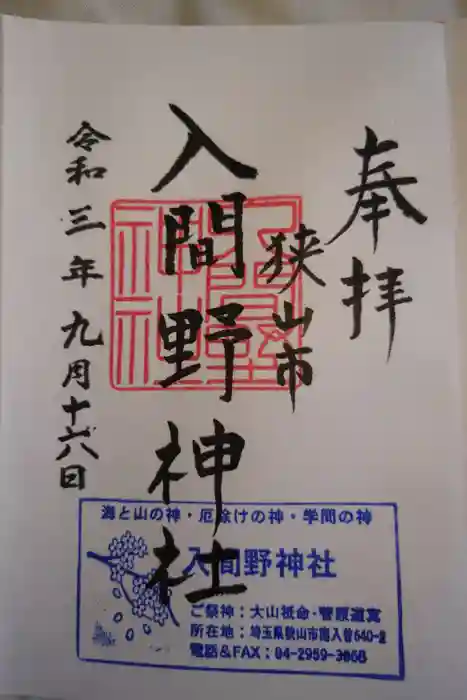 奉拝
狭山市
入間野神社
令和三年九月十六日
海と山の神・厄除けの神・学問の神
入間野神社
ご祭神：大山祇命・菅原道真
所在地：埼玉県狭山市南入曽640-2
電話＆FAX：04-2959-3868